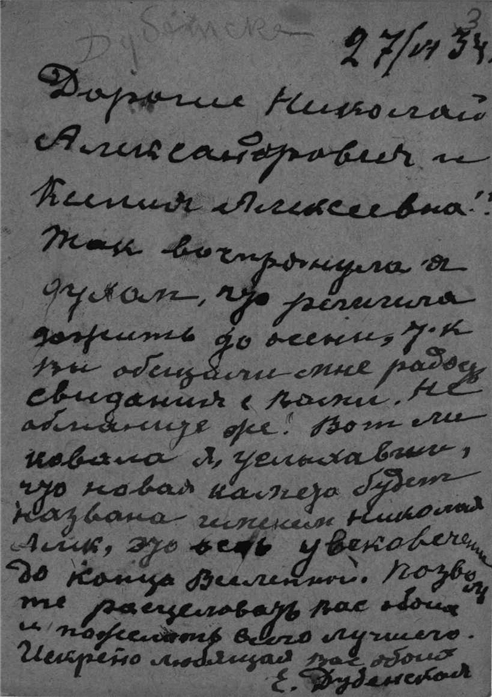 3
Дубенская
27/VI 34.
Дорогие Николай
Александрович и
Ксения Алексеевна!!
Так воспрянула я
духом, что решила
дожить до осени, т.к
вы обещали мне радость
свидания с вами. Не
обманите же! Вот ли
ковала я, услыхавши,
что новая комета будет
названа именем Николая
Алек, это есть увековечение
до конца Вселенной. Позволь
те расцеловать вас обоих
и пожелать всего лучшего.
Искрено любящая вас обоих
Е. Дубенская